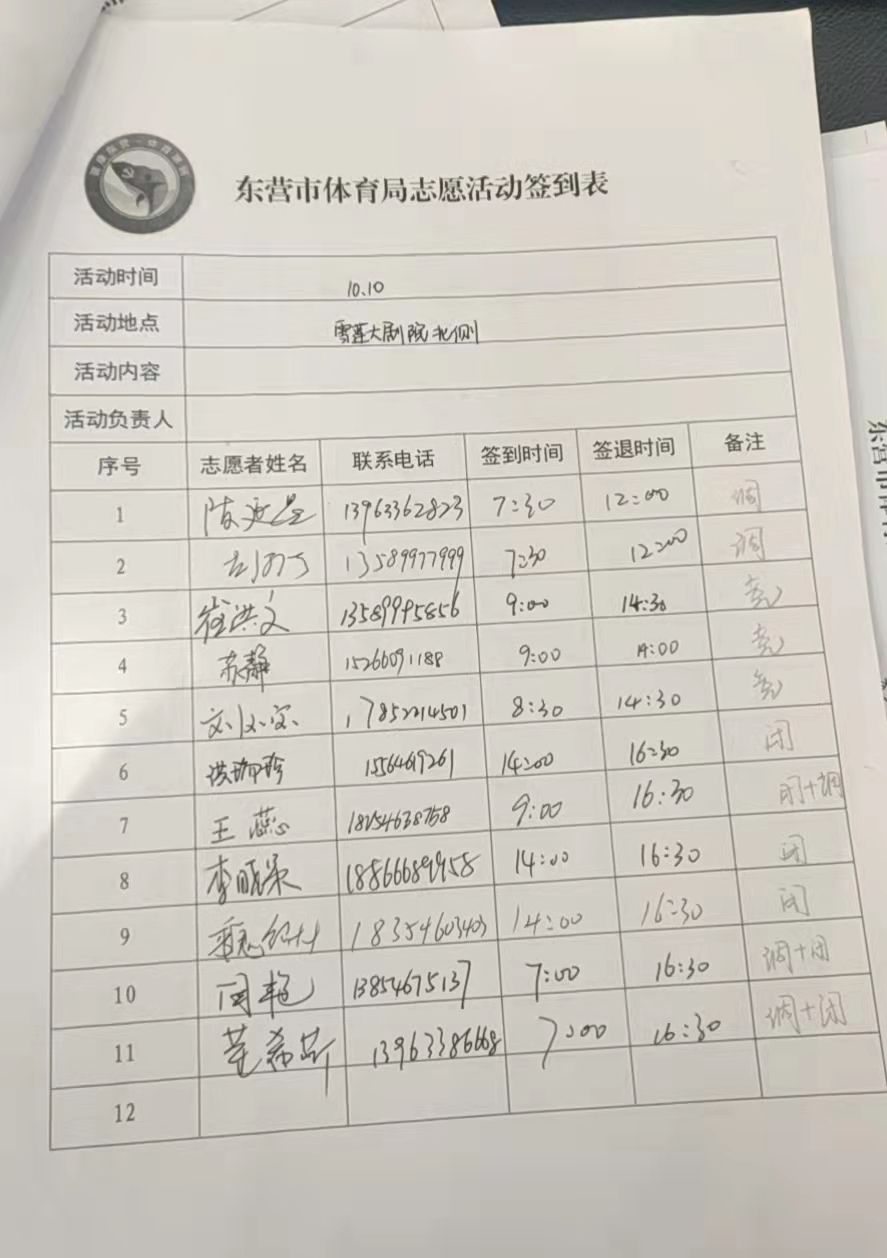 东营市体育局志愿活动签到表
活动时间 10.10
活动地点 雪莲大剧院北侧
活动内容
活动负责人
序号 志愿者姓名 联系电话 签到时间 签退时间 备注
1 13963362823 7:30 12:00 调
2 13589977999 7:30 12:00 调
3 崔洪文 13589995856 9:00 14:30
4 苏静 15266091188 9:00 14:00
5 17852214501 8:30 14:30
6 1556469261 14:00 16:30 闭
7 王蕊 18254638758 9:00 16:30 闭+调
8 李晓荣 18866689958 14:00 16:30 闭
9 18354603403 14:00 16:30 闭
10 周艳 13854675137 7:00 16:30 调+闭
11 13963386668 7:00 16:30 调+闭
12